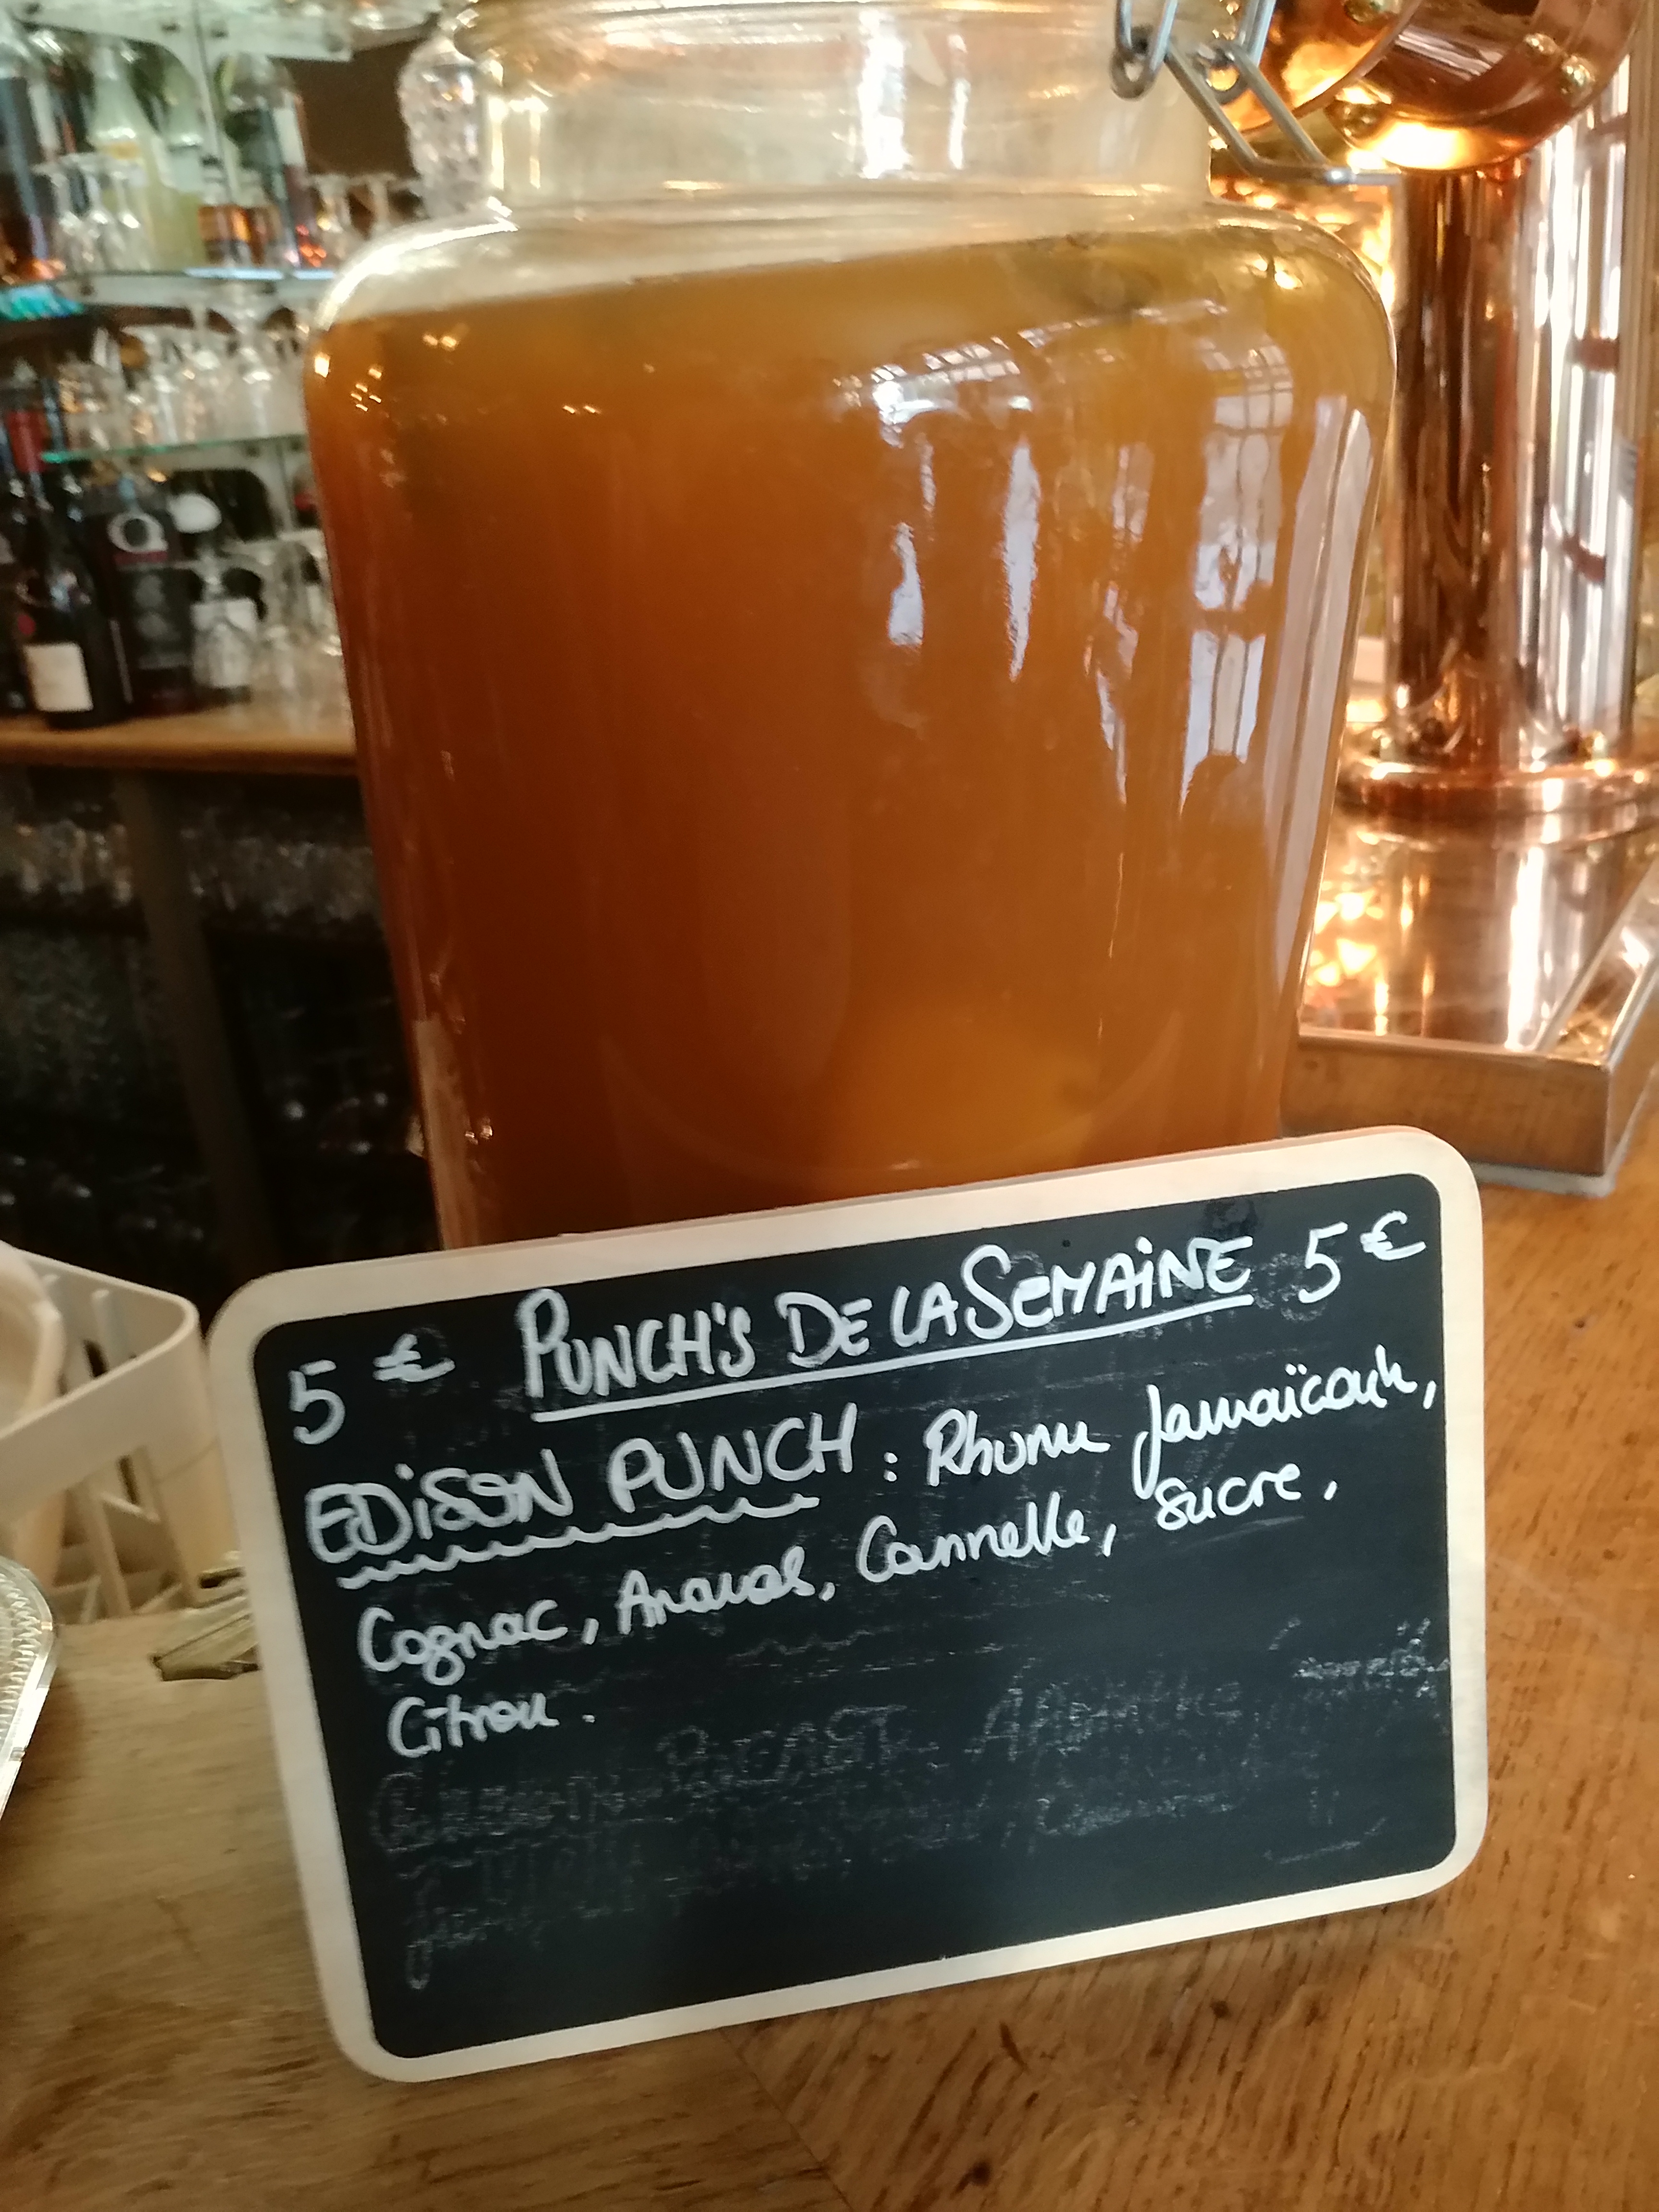 5 € PUNCH'S DE LA SEMAINE 5 €
EDISON PUNCH : Rhum Jamaïcain,
Cognac, Ananas, Cannelle, Sucre,
Citron.